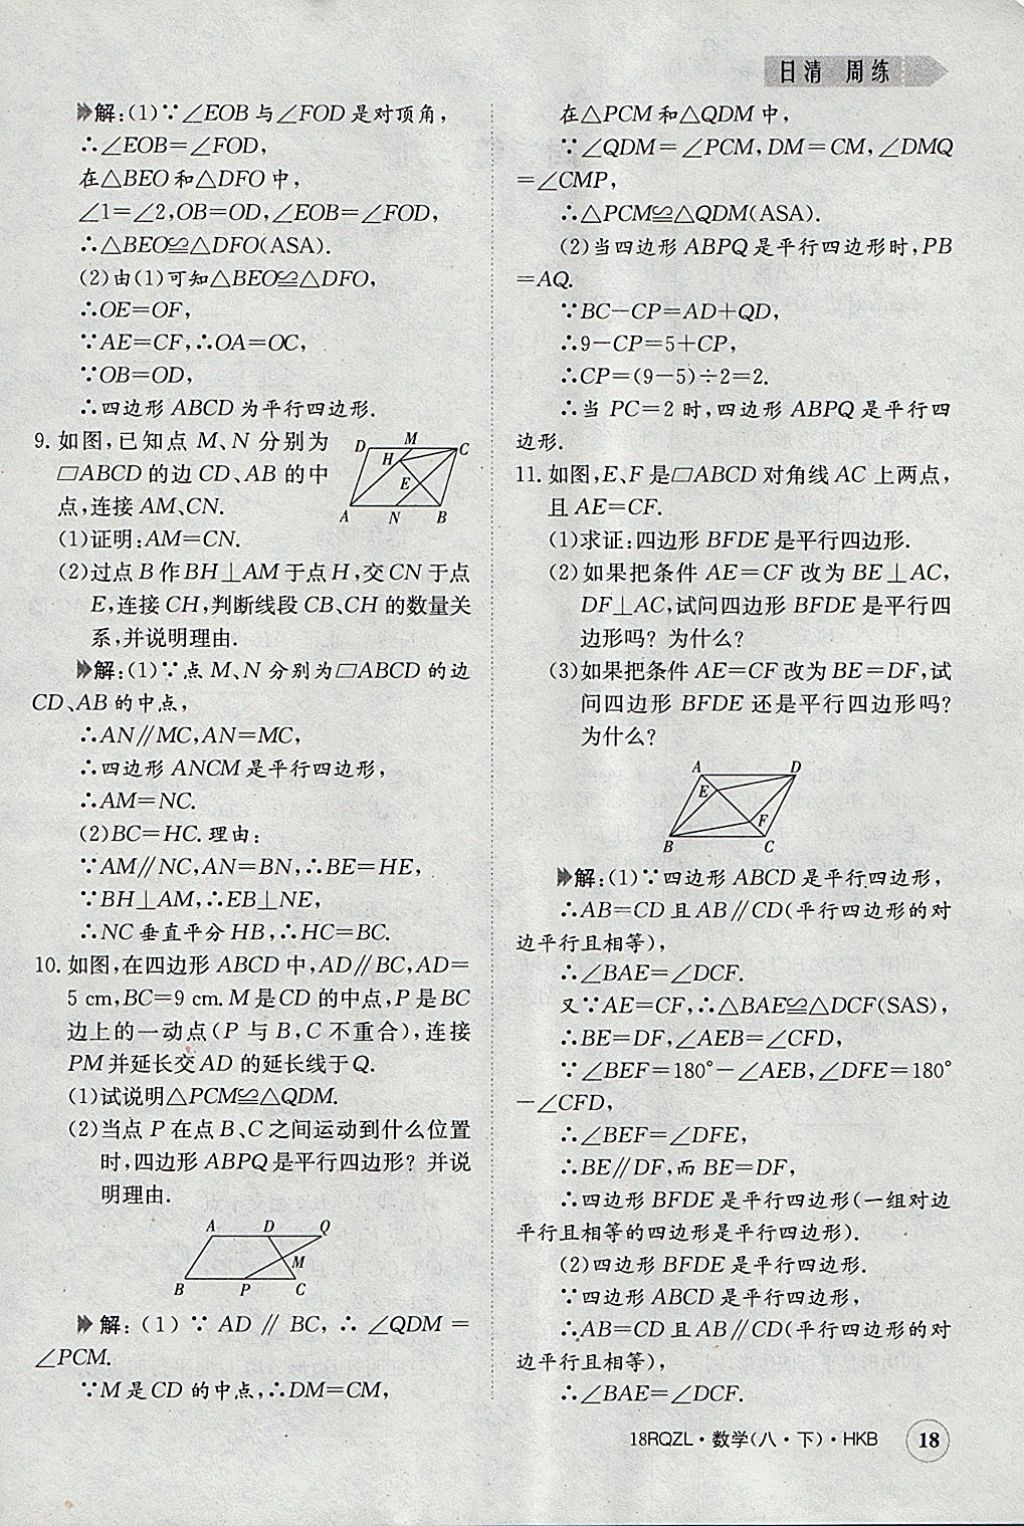 日清 周练
解:(1)∵∠EOB与∠FOD是对顶角,
∴∠EOB=∠FOD,
在△BEO和△DFO中,
∠1=∠2,OB=OD,∠EOB=∠FOD,
∴△BEO≌△DFO(ASA).
(2)由(1)可知△BEO≌△DFO,
∴OE=OF,
∵AE=CF,∴OA=OC,
∵OB=OD,
∴四边形ABCD为平行四边形.
9. 如图,已知点M、N分别为
▱ABCD的边CD、AB的中
点,连接AM、CN.
(1)证明:AM=CN.
(2)过点B作BH⊥AM于点H,交CN于点
E,连接CH,判断线段CB、CH的数量关
系,并说明理由.
D M C
H
E
A N B
解:(1)∵点M、N分别为▱ABCD的边
CD、AB的中点,
∴AN∥MC,AN=MC,
∴四边形ANCM是平行四边形,
∴AM=NC.
(2)BC=HC.理由:
∵AM∥NC,AN=BN,∴BE=HE,
∵BH⊥AM,∴EB⊥NE,
∴NC垂直平分HB,∴HC=BC.
10. 如图,在四边形ABCD中,AD∥BC,AD=
5 cm,BC=9 cm.M是CD的中点,P是BC
边上的一动点(P与B,C不重合),连接
PM并延长交AD的延长线于Q.
(1)试说明△PCM≌△QDM.
(2)当点P在点B、C之间运动到什么位置
时,四边形ABPQ是平行四边形?并说
明理由.
A D Q
M
B P C
解:(1)∵AD∥BC,∴∠QDM=
∠PCM.
∵M是CD的中点,∴DM=CM,
在△PCM和△QDM中,
∵∠QDM=∠PCM,DM=CM,∠DMQ
=∠CMP,
∴△PCM≌△QDM(ASA).
(2)当四边形ABPQ是平行四边形时,PB
=AQ.
∵BC-CP=AD+QD,
∴9-CP=5+CP,
∴CP=(9-5)÷2=2.
∴当PC=2时,四边形ABPQ是平行四
边形.
11. 如图,E、F是▱ABCD对角线AC上两点,
且AE=CF.
(1)求证:四边形BFDE是平行四边形.
(2)如果把条件AE=CF改为BE⊥AC,
DF⊥AC,试问四边形BFDE是平行四
边形吗?为什么?
(3)如果把条件AE=CF改为BE=DF,试
问四边形BFDE还是平行四边形吗?
为什么?
A D
E
F
B C
解:(1)∵四边形ABCD是平行四边形,
∴AB=CD且AB∥CD(平行四边形的对
边平行且相等),
∴∠BAE=∠DCF.
又∵AE=CF,∴△BAE≌△DCF(SAS),
∴BE=DF,∠AEB=∠CFD,
∵∠BEF=180°-∠AEB,∠DFE=180°
-∠CFD,
∴∠BEF=∠DFE,
∴BE∥DF,而BE=DF,
∴四边形BFDE是平行四边形(一组对边
平行且相等的四边形是平行四边形).
(2)四边形BFDE是平行四边形.
∵四边形ABCD是平行四边形,
∴AB=CD且AB∥CD(平行四边形的对
边平行且相等),
∴∠BAE=∠DCF.
18RQZL·数学(八·下)·HKB 18